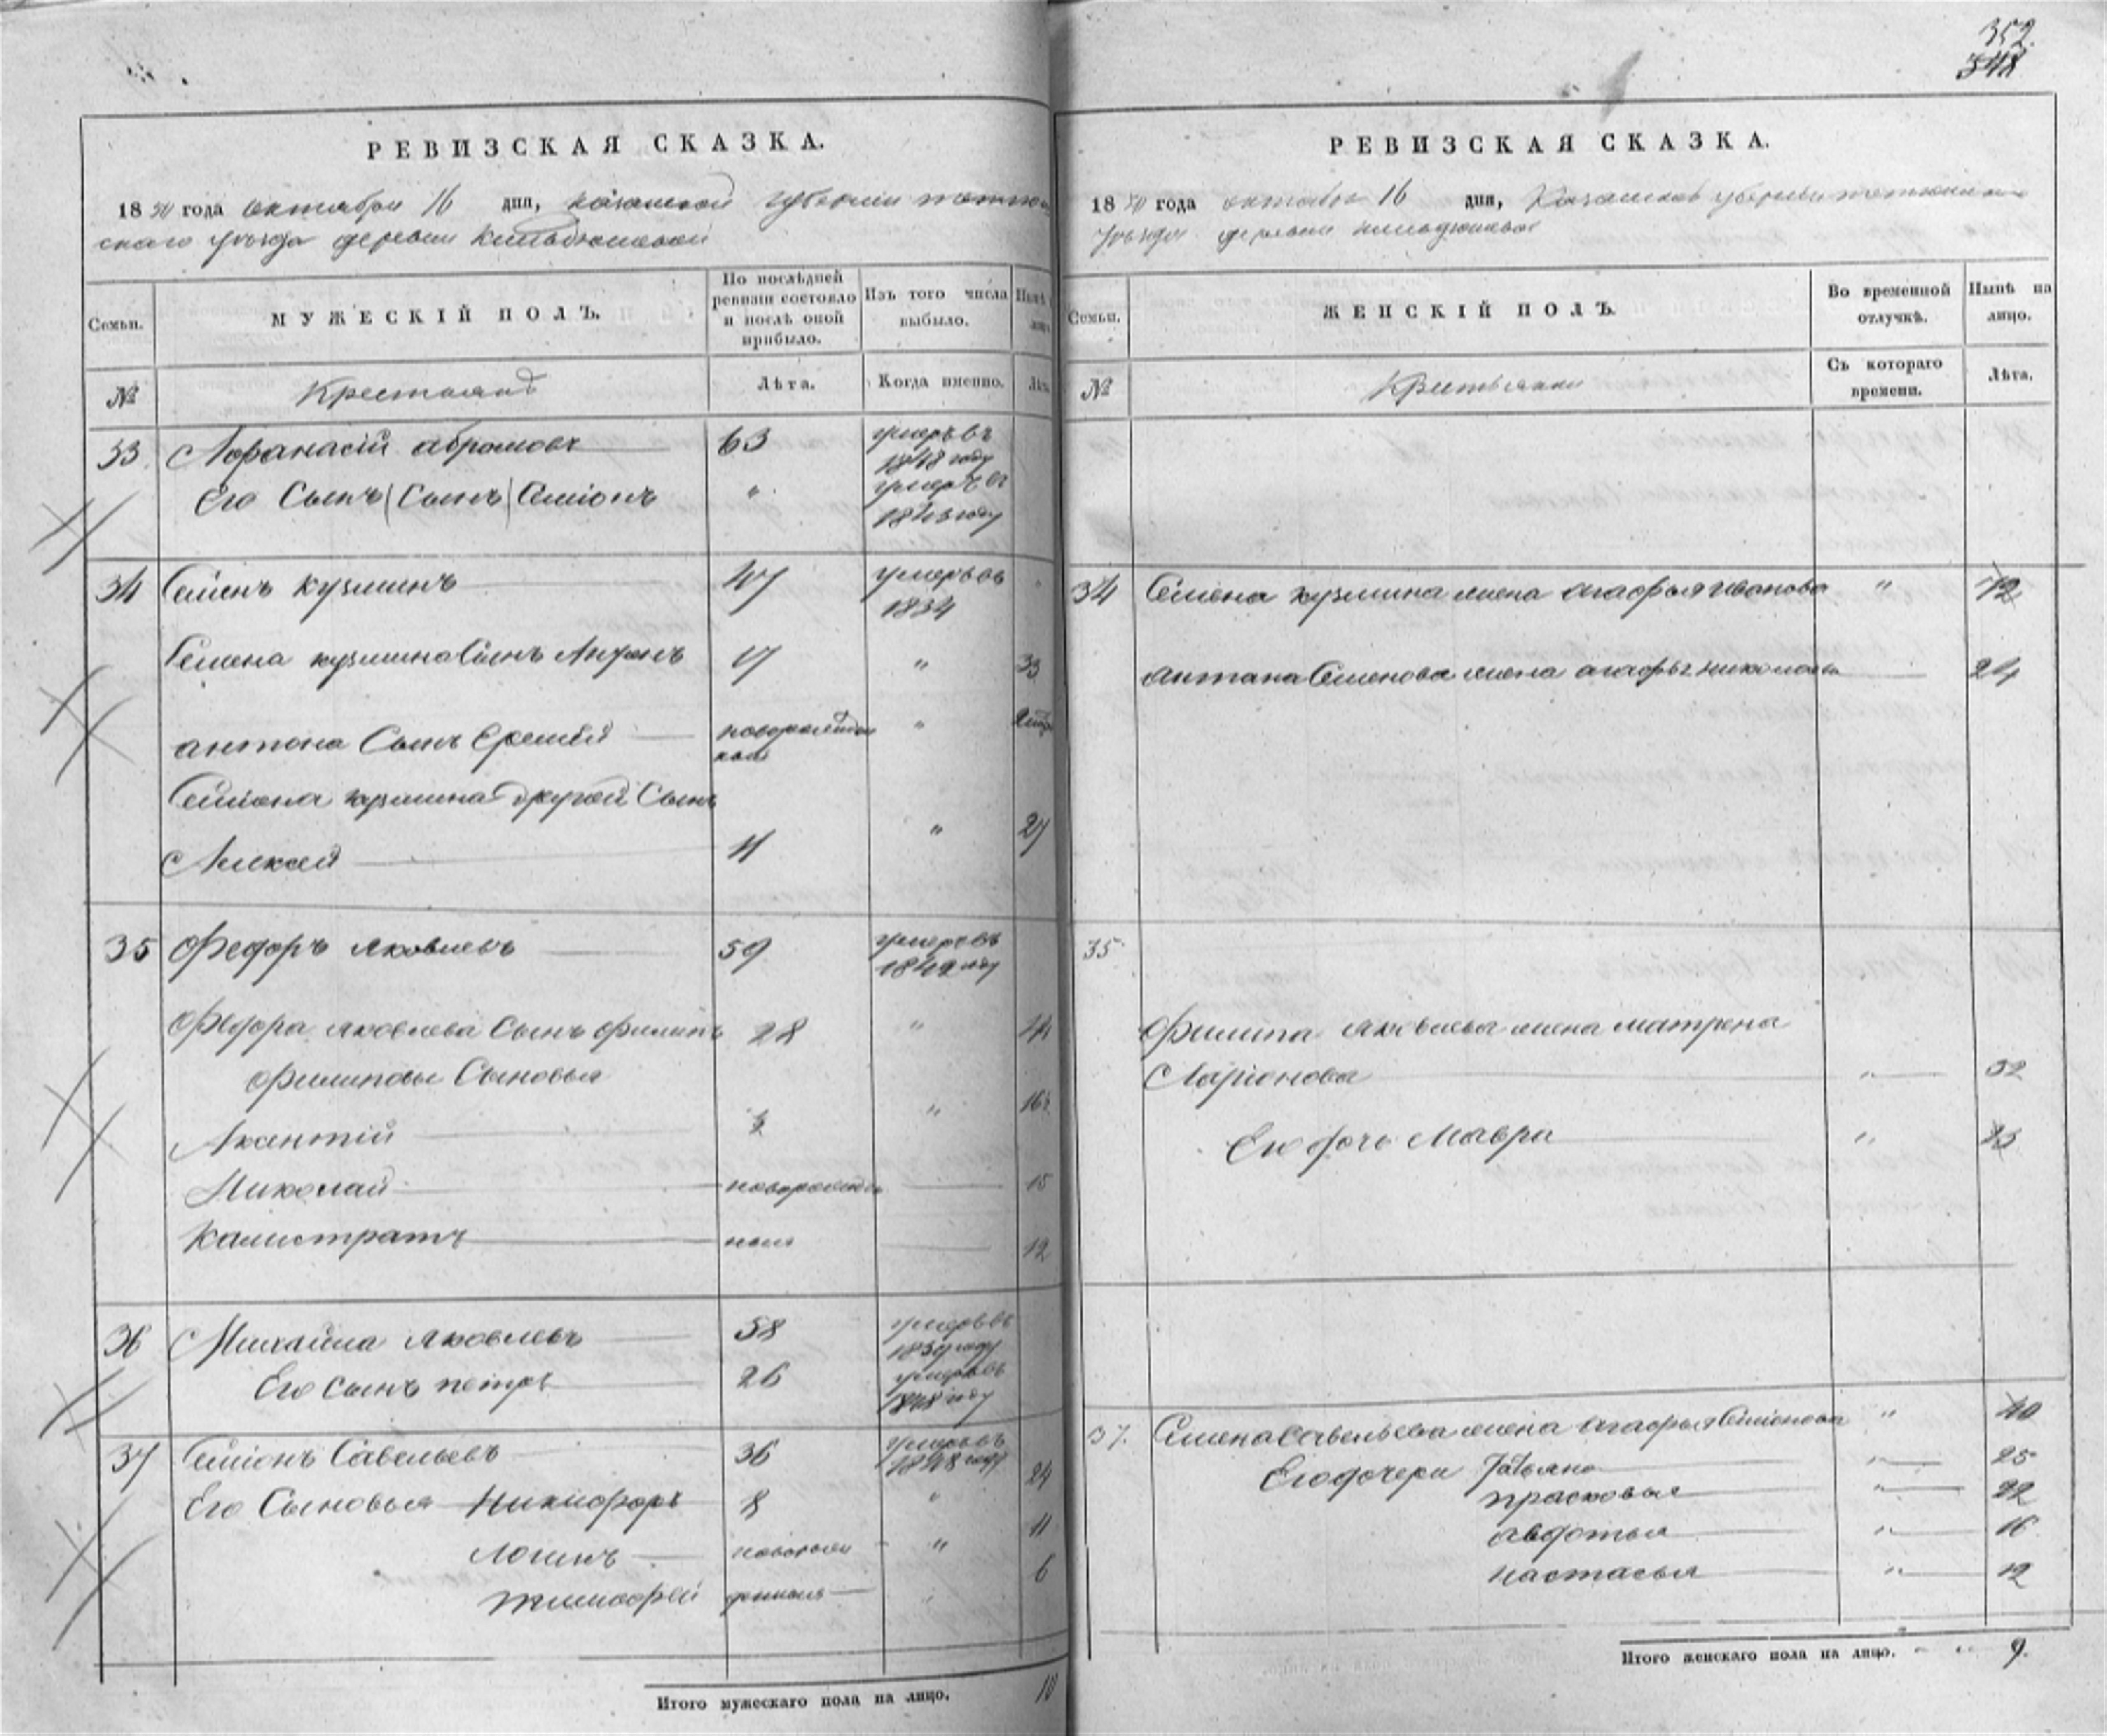 352.
348
РЕВИЗСКАЯ СКАЗКА.
1850 года октября 16 дня, казанской губернии тетюш
скаго уѣзда деревни Кильдюшевой
Семьи.
МУЖЕСКІЙ ПОЛЪ.
По послѣдней ревизіи состояло и послѣ оной прибыло.
Изъ того числа выбыло.
№
Крестьянъ
Лѣта.
Когда именно.
33 Афанасій абрамовъ 63 умеръ въ 1848 году
Его Сынъ (Сынъ) Семіонъ " умеръ въ 1843 году
34 Семенъ кузминъ 47 умеръ въ 1834
Семена кузмина Сынъ Антонъ 17 " 33
антона Сынъ Еремей новорожден "
Семиона кузмина другой Сынъ
Алексей 11 " 27
35 Федоръ яковлевъ 59 умеръ въ 1849 году
Федора яковлева Сынъ филипъ 28 " 44
филиповы Сыновья
Николай новорожден 15
Калистратъ 12
36 Михайла яковлевъ 58 умеръ въ 1839 году
Его сынъ петръ 26 умеръ въ 1848 году
37 Семіонъ Савельевъ 36 умеръ въ 1848 году
Его Сыновья Никифоръ 8 " 24
логинъ " 11
тимофей 6
Итого мужескаго пола на лицо. 10
РЕВИЗСКАЯ СКАЗКА.
1850 года октября 16 дня, Казанской губернии
уѣзда деревни кильдюшевой
Семьи.
ЖЕНСКІЙ ПОЛЪ.
Во временной отлучкѣ.
Нынѣ на лицо.
№
Крестьянки
Съ котораго времени.
Лѣта.
34 Семена кузмина жена агафья Иванова "
антона Семенова жена агафья николаева 24
35
Филипа яковлева жена матрена
Ларионова " 32
Его дочь Мавра "
37. Семена Савельева жена агафья Семионова " 40
Его дочери Татьяна " 25
прасковья " 22
авдотья " 16
настасья " 12
Итого женскаго пола на лицо. 9.